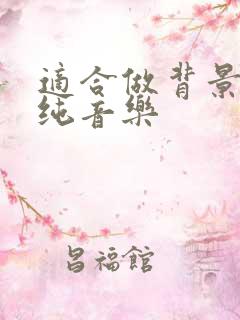 適合做背景
纯音樂
昌福館